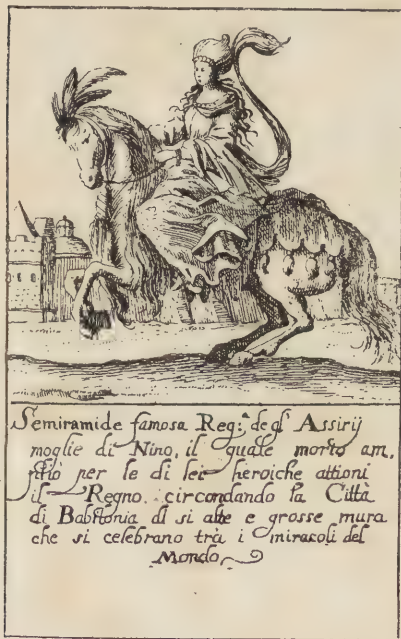 Semiramide famosa Reg:ª de gl' Assirij
moglie di Nino, il quale morto am,
pliò per le di lei heroiche attioni
il Regno circondando la Città
di Babilonia di si alte e grosse mura
che si celebrano trà i miracoli del
Mondo